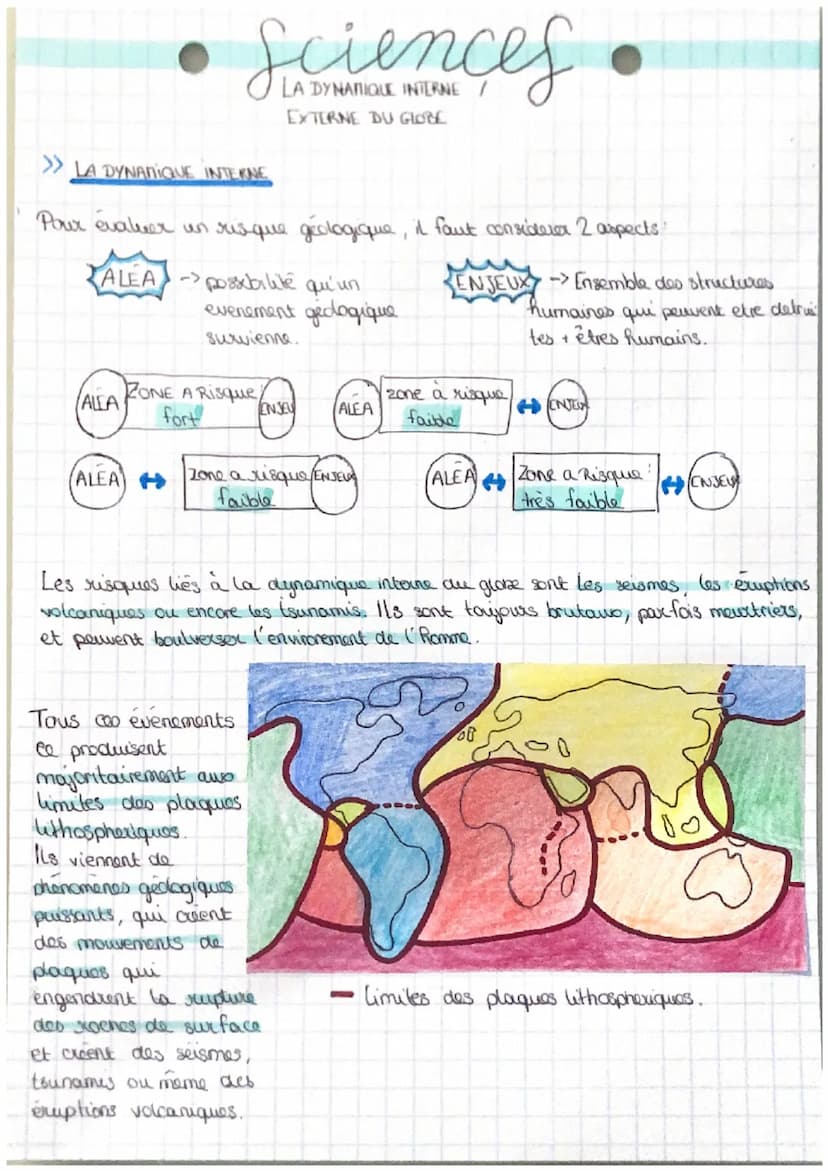 Sciences
LA DYNAMIQUE INTERNE /
EXTERNE DU GLOBE
>> LA DYNAMIQUE INTERNE
Pour évaluer un risque géologique, il faut considérer 2 aspects:
ALÉA -> possibilité qu'un
evenement géologique
survienne.
ENJEUX -> Ensemble des structures
humaines qui peuvent etre detrui
tes + êtres humains.
ALÉA ZONE A RISQUE fort ENJEU
ALÉA zone à risque faible ↔ ENJEU
ALÉA ↔ zone a risque faible ENJEUX
ALÉA ↔ Zone a Risque : très faible ↔ ENJEUX
Les risques liés à la dynamique interne du globe sont les seismes, les éruptions
volcaniques ou encore les tsunamis. Ils sont toujours brutaux, parfois meurtriers,
et peuvent boulverser l'environement de l'Homme.
Tous ces événements
se produisent
majoritairement aux
limites des plaques
lithospheriques.
Ils viennent de
phénomènes géologiques
puissants, qui créent
des mouvements de
plaques qui
engendrent la rupture
des roches de surface
et créent des séismes,
tsunamis ou même des
éruptions volcaniques.
— Limites des plaques lithospheriques.